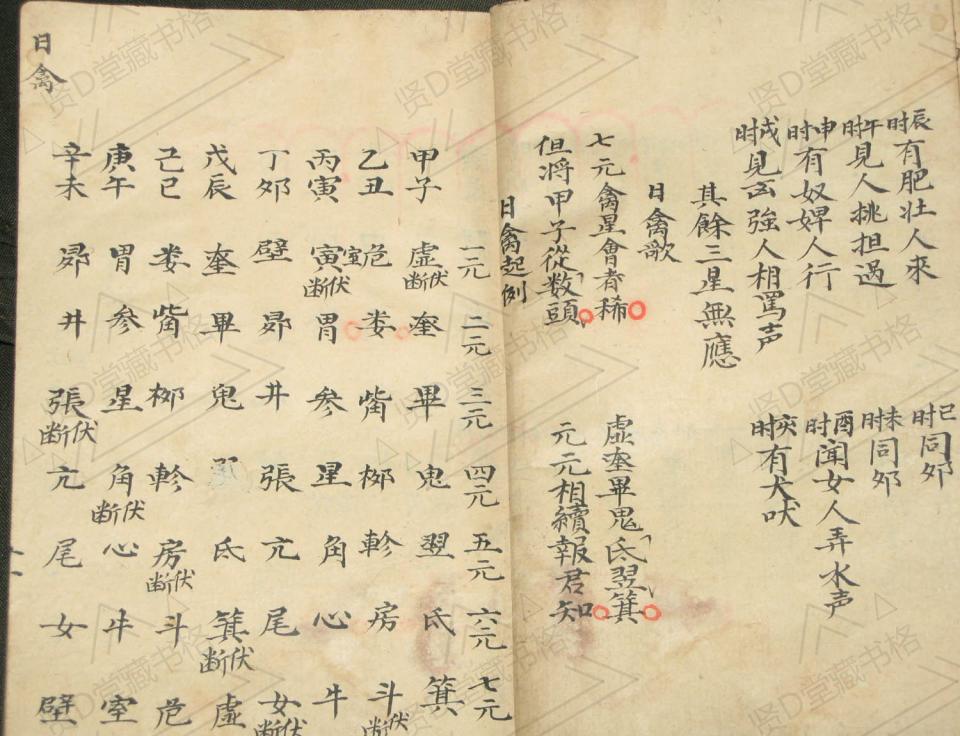 辰时有肥壮人來
巳时同夘
午时見人挑担過
未时同夘
申时有奴婢人行
酉时聞女人弄水声
戌时見㐫強人相罵声
亥时有犬吠
其餘三星無應
日禽歌
七元禽星會者稀
虛奎畢鬼氐翌箕
但将甲子從数頭
元元相續報君知
日禽起例
一元 二元 三元 四元 五元 六元 七元
甲子 虛伏断 奎 畢 鬼 翌 氐 箕
乙丑 危 娄 觜 柳 軫 房 斗伏断
丙寅 寅室伏断 胃 参 星 角 心 牛
丁夘 壁 昴 井 張 亢 尾 女伏断
戊辰 奎 畢 鬼 氐 箕伏断 虛
己巳 娄 觜 柳 軫 房伏断 斗 危
庚午 胃 参 星 角伏断 心 牛 室
辛未 昴 井 張伏断 亢 尾 女 壁
日禽
贤D堂藏书格